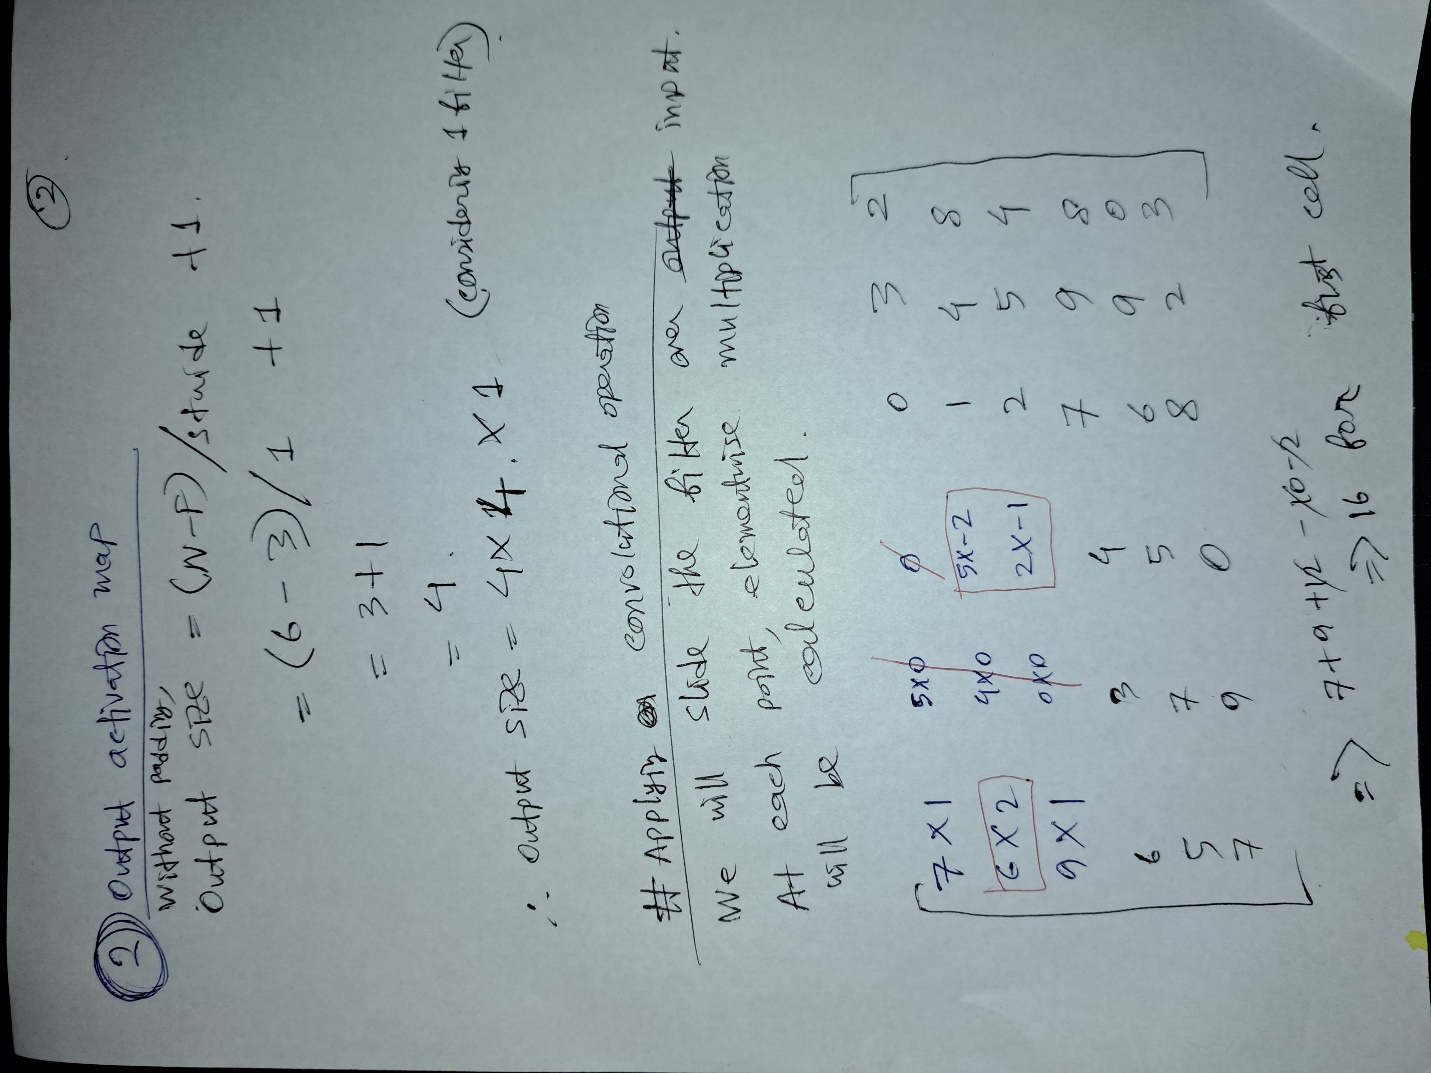 ②.
② Output activation map
without padding,
Output size = (N-P)/stride +1.
= (6-3)/1 +1
= 3+1
= 4.
∴ output size = 4x4.x1 (considering 1 filter).
# Applying convolutional operation
We will slide the filter over output input.
At each point, elementwise multiplication
will be calculated.
7x1 5x0 0 0 3 2
6x2 4x0 5x-2 1 4 8
9x1 0x0 2x-1 2 5 4
6 3 4 7 9 8
5 7 5 6 9 0
7 9 0 8 2 3
=> 7+9+12-10-2
=> 16 for first cell.